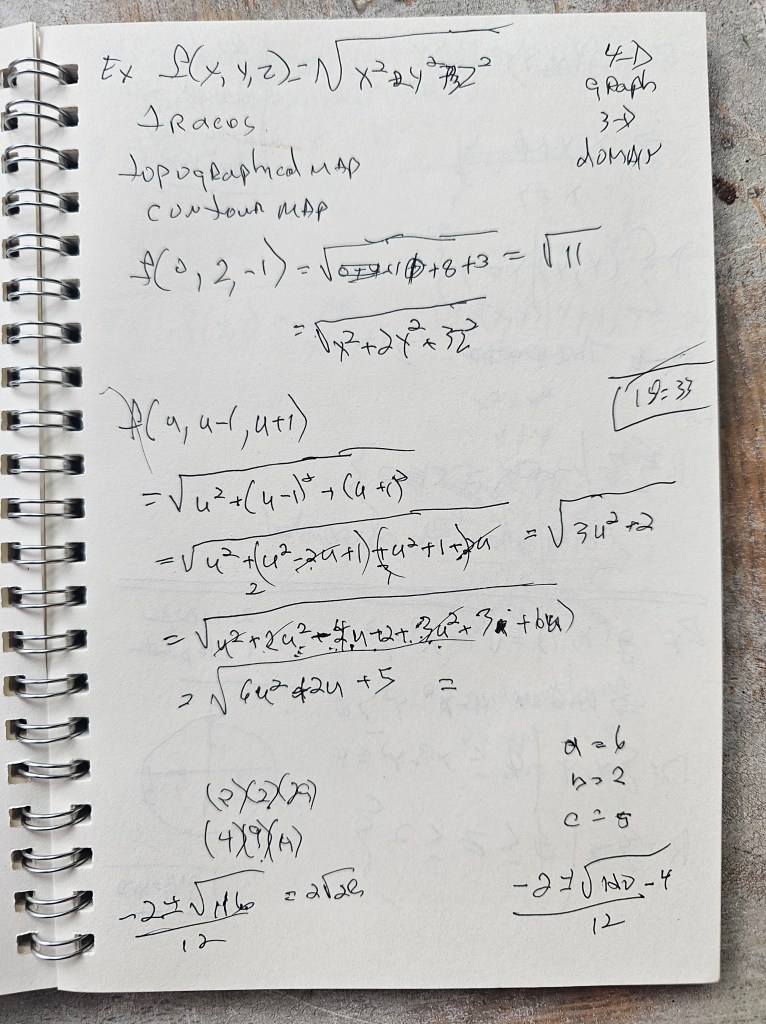 Ex f(x, y, z) = √x² + 2y² + 3z²
4-D
graph
3-D
domain
traces
topographical map
contour map
f(0, 2, -1) = √0 + 8 + 3 = √11
= √x² + 2y² + 3z²
19 = 33
f(u, u-1, u+1)
= √u² + (u-1)² + (u+1)²
= √u² + 2(u² - 2u + 1) + (u² + 1 + 2u = √3u² + 2
= √u² + 2u² - 4u + 2 + 3u² + 3 + 6u)
= √6u² + 2u + 5 =
a = 6
b = 2
c = 5
(2)(2)(29)
-2 ± √116 / 12 = 2√29
-2 ± √120 - 4 / 12